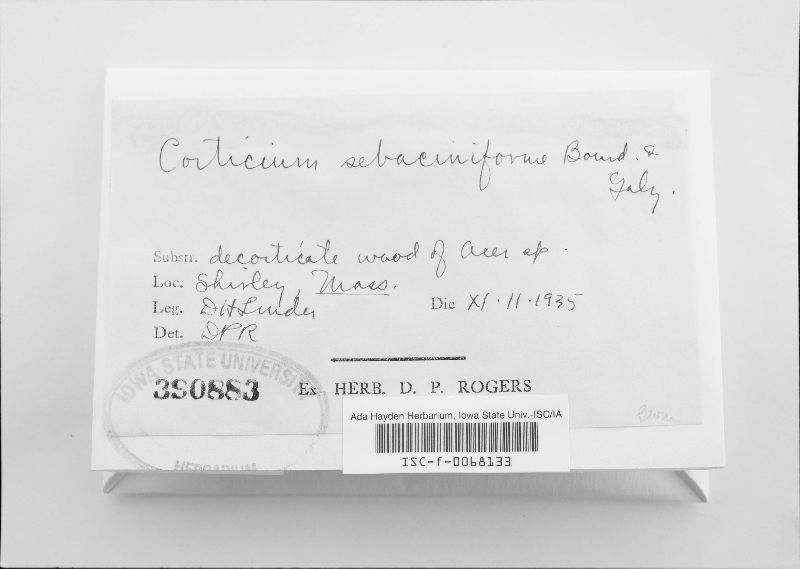 Corticium sebaciniforme Bourd. &
Galz.
Substr. decorticate wood of Acer sp.
Loc. Shirley, Mass.
Leg. DH Linder Die XI·11·1935
Det. DPR
IOWA STATE UNIVERSITY
390883
Ex HERB. D. P. ROGERS
HERBARIUM
Ada Hayden Herbarium, Iowa State Univ.-ISC/IA
ISC-f-0068133